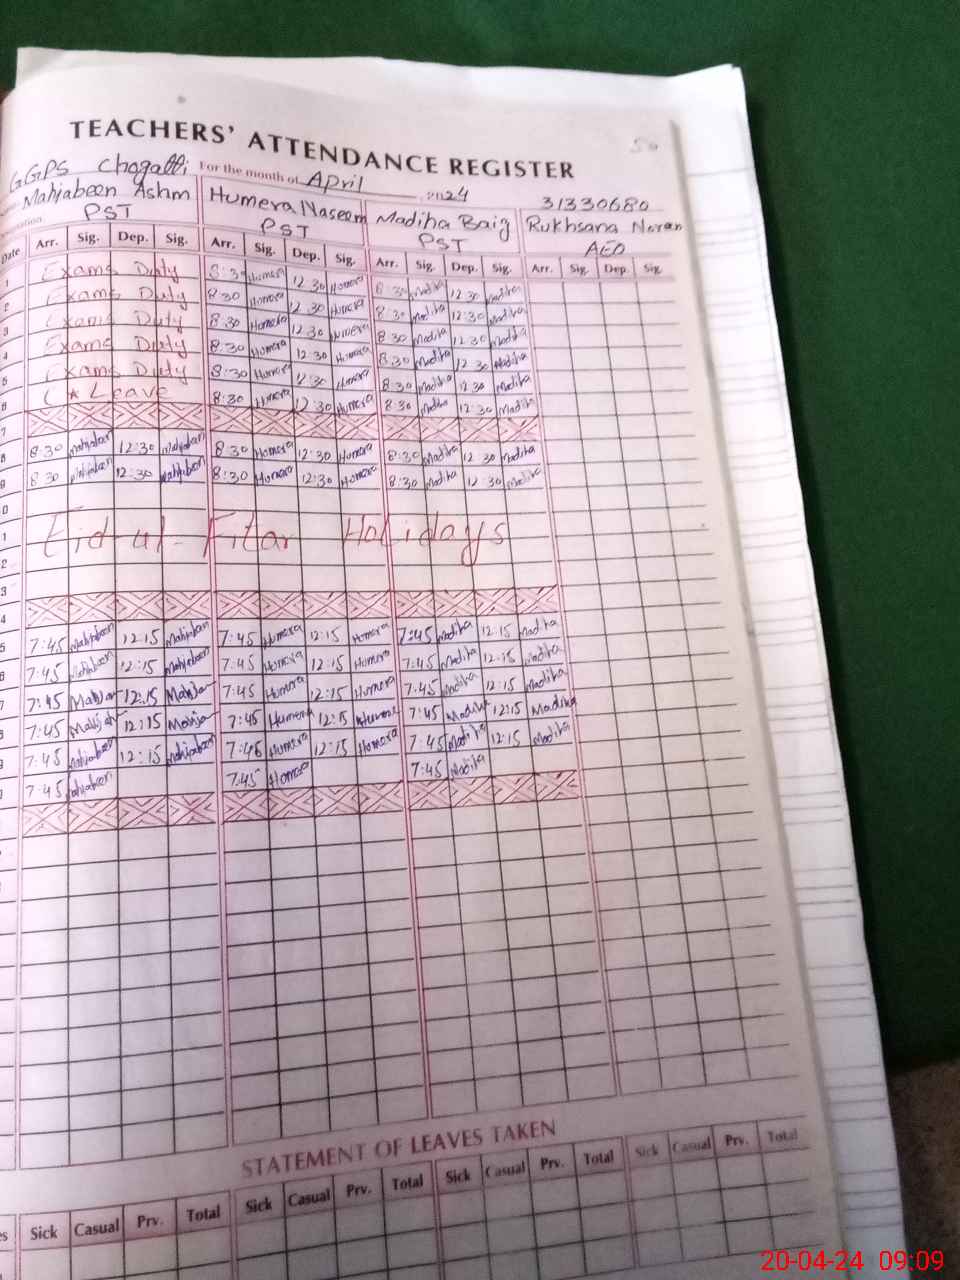 50
TEACHERS' ATTENDANCE REGISTER
GGPS Chogatti For the month of April 2024 31330680
Mahjabeen Ashm Humera Naseem Madiha Baig Rukhsana
PST PST PST AEO
Date Arr. Sig. Dep. Sig. Arr. Sig. Dep. Sig. Arr. Sig. Dep. Sig. Arr. Sig. Dep. Sig.
1 Exams Duty 8:30 Humera 12:30 Humera 8:30 Madiha 12:30 Madiha
2 Exams Duty 8:30 Humera 12:30 Humera 8:30 Madiha 12:30 Madiha
3 Exams Duty 8:30 Humera 12:30 Humera 8:30 Madiha 12:30 Madiha
4 Exams Duty 8:30 Humera 12:30 Humera 8:30 Madiha 12:30 Madiha
5 Exams Duty 8:30 Humera 12:30 Humera 8:30 Madiha 12:30 Madiha
6 C * Leave 8:30 Humera 12:30 Humera 8:30 Madiha 12:30 Madiha
7
8 8:30 Mahjabeen 12:30 Mahjabeen 8:30 Humera 12:30 Humera 8:30 Madiha 12:30 Madiha
9 8:30 Mahjabeen 12:30 Mahjabeen 8:30 Humera 12:30 Humera 8:30 Madiha 12:30 Madiha
0
1 Eid-ul-Fitar Holidays
2
3
4
5 7:45 Mahjabeen 12:15 Mahjabeen 7:45 Humera 12:15 Humera 7:45 Madiha 12:15 Madiha
6 7:45 Mahjabeen 12:15 Mahjabeen 7:45 Humera 12:15 Humera 7:45 Madiha 12:15 Madiha
7 7:45 12:15 7:45 Humera 12:15 Humera 7:45 Madiha 12:15 Madiha
8 7:45 12:15 7:45 Humera 12:15 Humera 7:45 Madiha 12:15 Madiha
9 7:45 Mahjabeen 12:15 Mahjabeen 7:45 Humera 12:15 Humera 7:45 Madiha 12:15 Madiha
7:45 Mahjabeen 7:45 Humera 7:45 Madiha
STATEMENT OF LEAVES TAKEN
Sick Casual Prv. Total Sick Casual Prv. Total Sick Casual Prv. Total Sick Casual Prv. Total
20-04-24 09:09